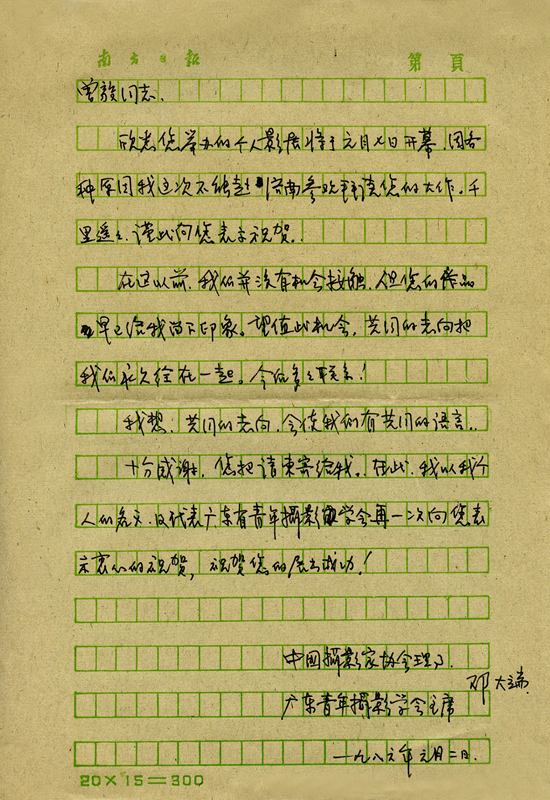 南方日报 第 頁
曾毅同志：
欣悉您举办的个人影展将于元月七日开幕，因各
种原因我这次不能赴济南参观拜读您的大作。千
里遥之，谨此向您表示祝贺。
在这以前，我们并没有机会接触，但您的作品
早已给我留下印象。望值此机会，共同的志向把
我们永久结在一起。今后多之联系！
我想，共同的志向，会使我们有共同的语言。
十分感谢，您把请柬寄给我。在此，我以我个
人的名义，以代表广东省青年攝影学会再一次向您表
示衷心的祝贺，祝贺您的展出成功！
中国攝影家协会理事
邓大端
广东青年攝影学会主席
一九八六年元月二日.
20×15=300